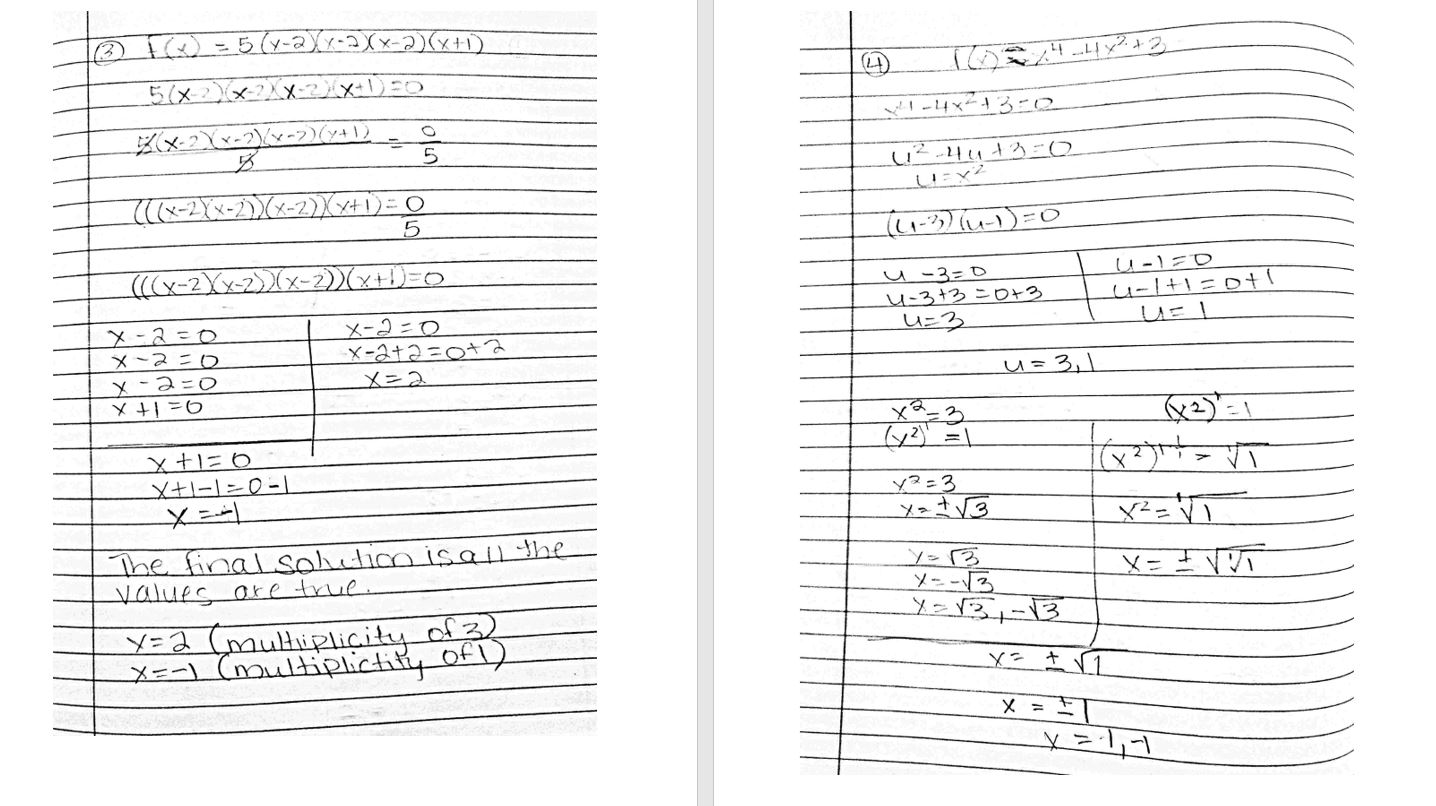 ③ f(x) = 5(x-2)(x-2)(x-2)(x+1)
5(x-2)(x-2)(x-2)(x+1)=0
5(x-2)(x-2)(x-2)(x+1) = 0
5 5
(((x-2)(x-2))(x-2))(x+1)=0
5
(((x-2)(x-2))(x-2))(x+1)=0
x-2=0
x-2=0
x-2=0
x+1=0
x-2=0
x-2+2=0+2
x=2
x+1=0
x+1-1=0-1
x=-1
The final solution is all the
values are true.
x=2 (multiiplicity of 3)
x=-1 (multiplictity of 1)
④ f(x)=x⁴-4x²+3
x⁴-4x²+3=0
u²-4u+3=0
u=x²
(u-3)(u-1)=0
u-3=0
u-3+3=0+3
u=3
u-1=0
u-1+1=0+1
u=1
u=3,1
x²=3
(x²)¹=1
x²=3
x=±√3
x=√3
x=-√3
x=√3,-√3
(x²)¹=1
x²=¹√1
x=±√¹√1
x=±√1
x=±1
x=1,-1